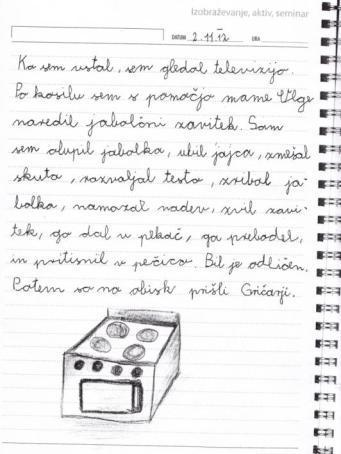 Izobraževanje, aktiv, seminar
DATUM 2.11.12 URA
Ko sem vstal, sem gledal televizijo.
Po kosilu sem s pomočjo mame Olge
naredil jabolčni zavitek. Sam
sem olupil jabolka, ubil jajca, zmešal
skuto, razvaljal testo, zribal ja-
bolka, namazal nadev, zvil zavi-
tek, ga dal v pekač, ga prebodel,
in pritisnil v pečico. Bil je odličen.
Potem so na obisk prišli Gričarji.